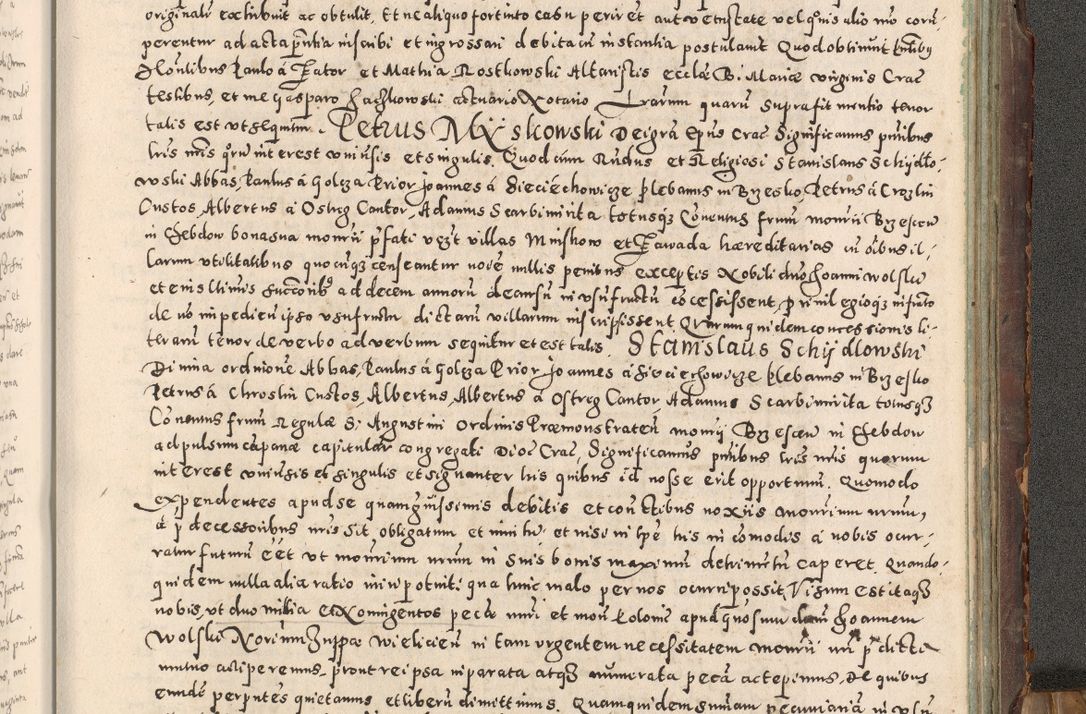 originali exhibuit ac obtulit. Et ne aliquo fortuito casu periret aut vetustate vel quovis alio mō corū-
perentur ad acta prntia inscribi et ingrossari debita cū instantia postulavit Quod obtinuit
Paulo à Zator et Mathia Rostkowski Altaristis ecclæ B. Mariæ virginis Crac
testibus, et me Gasparo actuario Notario Lrarum quarū supra fit mentio tenor
talis est ut sequitur. Petrus Myskowski Dei grã Epūs Crac Significamus pntibus
lris nris quorū interest universis et singulis. Quod cum Rndus et Religiosi Stanislaus Schijdło-
wski Abbas, Paulus à Golcza Prior, Joannes à Sieciechowicze plebanus in Brzesko, Petrus à Crozlin
Custos, Albertus à Ostreg Cantor, Adamus Scarbimirita totusqz Conventus frum monrii Brzescen
in Hebdow bona sua monrii pfati vezt villas Minskow et Zawada hæreditarias cū oibus il-
larum utilitatibus quocūqz censeantur noīe nullis penitus exceptis Nobili dno Joanni Wolski
et eius ltimis succorib ad decem annorū decursū in usūfructū cōcessissent, privilegioqz
de nō impediendo ipso usufructu dictarū villarum inscripsissent Quarum quidem concessionis li-
terarū tenor de verbo ad verbum sequitur et est talis. Stanislaus Schijdlowski
Divina ordinone Abbas, Paulus à Golcza Prior Joannes à Sieciechowicze plebanus in Brzesko
Petrus à Chroslin Custos, Albertus, Albertus à Ostreg Cantor, Adamus Scarbimirita totusqz
Conventus frum Regulæ S. Augustini Ordinis Præmonstraten monrij Brzescen in Hebdow
ad pulsum cāpanæ capitular congregati Dioc Crac, Significamus pntibus lris nris quorum
interest universis et singulis et signanter his quibus id nosse erit opportunū. Quomodo
expendentes apud se quam gravissimis debitis et contibus noxiis monrium nrum,
à pdecessoribus nris sit obligatum et nisi in tpe his incōmodis à nobis ocur-
ratur futurū eēt ut monrium nrum in suis bonis maximū detrimentū caperet. Quando-
quidem nulla alia ratio iniri potuit, qua huic malo per nos ocurri possit, Visum est itaqz
nobis, ut duo millia et Nonningentos pecæ nūri et mon Poloniē apud gnosum dnm Joannem
Wolski Norimī Zuppæ Wieliciēn in tam urgentem necessitatem monrii nri pdicti
mutuo acciperemus, prout rei psa in parata atqz numerata pecā accepimus, de quibus
eundē per pntes quietamus et liberū dimittimus. Quamquidem summam pecuniariā in